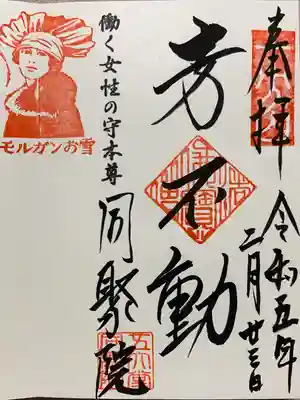 奉拝
令和五年
二月廿三日
十万不動
働く女性の守本尊
同聚院
モルガンお雪